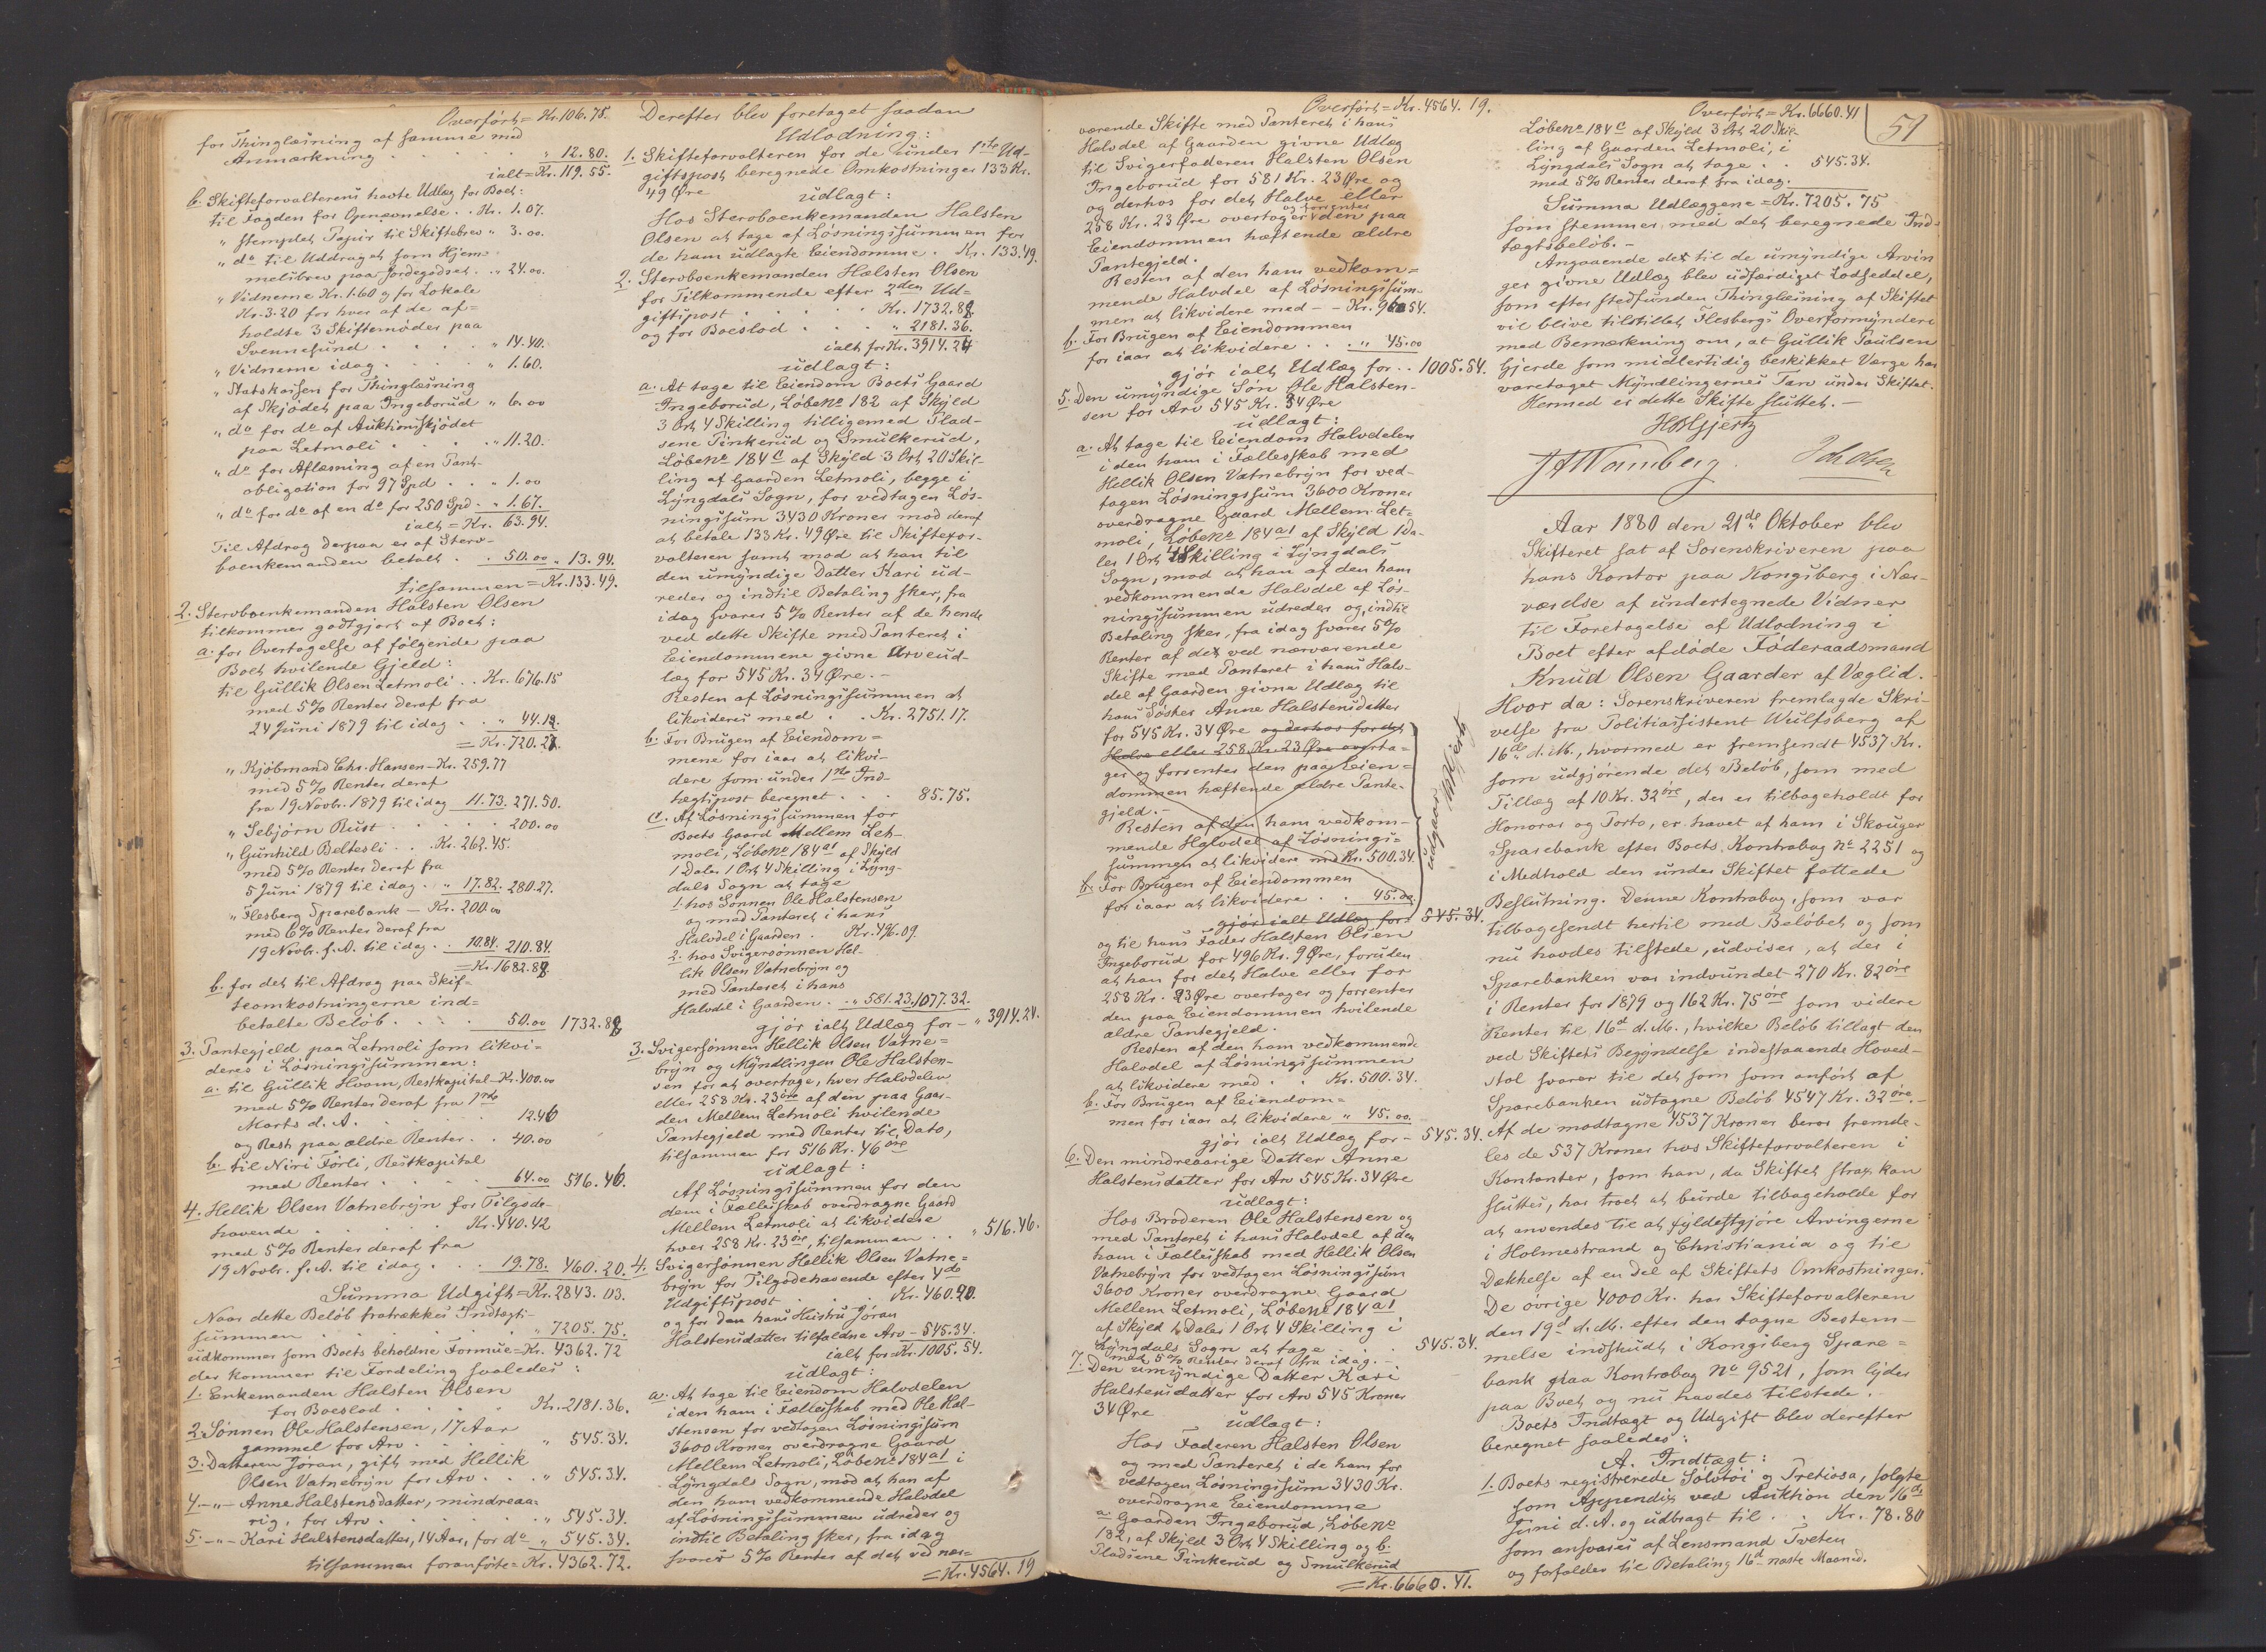 Overført = Kr. 106.75.
for Thinglæsning af samme med
Anmærkning . . . . " 12.80.
ialt = Kr. 119.55.
b. Skifteforvalterens havte Udlæg for Boet:
til Fogden for Opnævnelse . . Kr. 1.07.
" stemplet Papir til Skiftebrev " 3.00.
" do til Uddraget som Hjem-
melsbrev paa Jordegodset . . " 24.00.
" Vidnerne Kr. 1.60 og for Lokale
Kr. 3.20 for hver af de af-
holdte 3 Skiftemøder paa
Svennesund . . . . " 14.40.
" Vidnerne idag . . . . " 1.60.
" Statskassen for Thinglæsning
af Skjødet paa Ingeborud " 6.00
" do for do af Auktionsskjødet
paa Letmoli . . . . " 11.20.
" do for Aflæsning af en Pant-
obligation for 97 Spd . . " 1.00
" do for do af en do for 250 Spd . " 1.67.
ialt = Kr. 63.94.
Til Afdrag derpaa er af Sterv-
boenkemanden betalt . . 50.00 " 13.94.
tilsammen = Kr. 133.49.
2. Stervboenkemanden Halsten Olsen
tilkommer godtgjort af Boet:
a. for Overtagelse af følgende paa
Boet hvilende Gjeld:
til Gullik Olsen Letmoli . . Kr. 676.15
med 5% Renter deraf fra
24 Juni 1879 til idag . . " 44.12.
= Kr. 720.27.
" Kjøbmand Chr. Hansen – Kr. 259.77
med 5% Renter deraf
fra 19 Novbr. 1879 til idag 11.73. 271.50.
" Sebjørn Rust . . . . 200.00
" Gunhild Beltesli . . Kr. 262.45.
med 5% Renter deraf fra
5 Juni 1879 til idag . . " 17.82. 280.27.
" Flesberg Sparebank – Kr. 200.00
med 6% Renter deraf fra
19 Novbr. f. A. til idag . . 10.84. 210.84.
= Kr. 1682.88.
b. for det til Afdrag paa Skif-
teomkostningerne ind-
betalte Beløb . . . . 50.00 1732.88
3. Pantegjeld paa Letmoli som likvi-
deres i Løsningssummen:
a. til Gullik Hvam, Restkapital – Kr. 400.00
med 5% Renter deraf fra 1ste
Marts d. A. . . . . 12.46
og Rest paa ældre Renter . . 40.00
b. til Niri Førli, Restkapital
med Renter . . . . 64.00 516.46.
4. Hellik Olsen Vatnebryn for Tilgode-
havende . . . . Kr. 440.42
med 5% Renter deraf fra
19 Novbr. f. A. til idag . . . 19.78. 460.20.
Summa Udgift = Kr. 2843.03.
Naar dette Beløb fratrækkes Indtægts-
summen . . . . " 7205.75.
udkommer som Boets beholdne Formue = Kr. 4362.72
der kommer til Fordeling saaledes:
1. Enkemanden Halsten Olsen
for Boeslod . . . . Kr. 2181.36.
2. Sønnen Ole Halstensen, 17 Aar
gammel for Arv . . . . " 545.34.
3. Datteren Jøran, gift med Hellik
Olsen Vatnebryn for Arv . . . " 545.34.
4. –"– Anne Halstensdatter, mindreaa-
rig, for Arv . . . . " 545.34.
5. –"– Kari Halstensdatter, 14 Aar, for do " 545.34.
tilsammen foranførte = Kr. 4362.72.
Derefter blev foretaget saadan
Udlodning:
1. Skifteforvalteren for de under 1ste Ud-
giftspost beregnede Omkostninger 133 Kr.
49 Øre udlagt:
Hos Stervboenkemanden Halsten
Olsen at tage af Løsningssummen for
de ham udlagte Eiendomme . Kr. 133.49.
2. Stervboenkemanden Halsten Olsen
for Tilkommende efter 2den Ud-
giftspost . . . . Kr. 1732.88
og for Boeslod . . . " 2181.36.
ialt for Kr. 3914.24
udlagt:
a. At tage til Eiendom Boets Gaard
Ingeborud, Løbeno 182 af Skyld
3 Ort 4 Skilling tilligemed Plad-
sene Tinkerud og Smulkerud,
Løbeno 184 c af Skyld 3 Ort 20 Skil-
ling af Gaarden Letmoli, begge i
Lyngdals Sogn, for vedtagen Løs-
ningssum 3430 Kroner mod deraf
at betale 133 Kr. 49 Øre til Skiftefor-
valteren samt mod at han til
den umyndige Datter Kari ud-
reder og indtil Betaling sker, fra
idag svarer 5% Renter af de hende
ved dette Skifte med Panteret i
Eiendommene givne Arveud-
læg for 545 Kr. 34 Øre. –
Resten af Løsningssummen at
likvideres med . . Kr. 2751.17.
b. For Brugen af Eiendom-
mene for iaar at likvi-
dere som under 1ste Ind-
tægtspost beregnet . . . 85.75.
c. Af Løsningssummen for
Boets Gaard Mellem Let-
moli, Løbeno 184 a1 af Skyld
1 Daler 1 Ort 4 Skilling i Lyng-
dals Sogn at tage
1. hos Sønnen Ole Halstensen
og med Panteret i hans
Halvdel i Gaarden . Kr. 496.09.
2. hos Svigersønnen Hel-
lik Olsen Vatnebryn og
med Panteret i hans
Halvdel i Gaarden . . " 581.23. 1077.32.
gjør ialt Udlæg for – " 3914.24.
3. Svigersønnen Hellik Olsen Vatne-
bryn og Myndlingen Ole Halsten-
sen for at overtage, hver Halvdelen
eller 258 Kr. 23 øre af den paa Gaar-
den Mellem Letmoli hvilende
Pantegjeld med Renter til Dato,
tilsammen for 516 Kr. 46 øre
udlagt:
Af Løsningssummen for den
dem i Fællesskab overdragne Gaard
Mellem Letmoli at likvidere
hver 258 Kr. 23 øre, tilsammen . . " 516.46.
4. Svigersønnen Hellik Olsen Vatne-
bryn for Tilgodehavende efter 4de
Udgiftspost . . . Kr. 460.20.
og for den hans Hustru Jøran
Halstensdatter tilfaldne Arv – 545.34.
ialt for Kr. 1005.54.
udlagt:
a. At tage til Eiendom Halvdelen
i den ham i Fællesskab med Ole Hal-
stensen for vedtagen Løsningssum
3600 Kroner overdragne Gaard
Mellem Letmoli, Løbeno 184 a1 i
Lyngdals Sogn, mod at han af
den ham vedkommende Halvdel
af Løsningssummen udreder og
indtil Betaling sker, fra idag
svarer 5% Renter af det ved nær-
= Kr. 4564.19
Overført = Kr. 4564.19.
værende Skifte med Panteret i hans
Halvdel af Gaarden givne Udlæg
til Svigerfaderen Halsten Olsen
Ingeborud for 581 Kr. 23 Øre og
og derhos for det Halve eller
258 Kr. 23 Øre overtager og forrenter den paa
Eiendommen hæftende ældre
Pantegjeld.
Resten af den ham vedkom-
mende Halvdel af Løsningssum-
men at likvidere med – – Kr. 960.54.
b. For Brugen af Eiendommen
for iaar at likvidere . . . " 45.00
gjør ialt Udlæg for . . 1005.54.
5. Den umyndige Søn Ole Halsten-
sen for Arv 545 Kr. 34 Øre
udlagt:
a. At tage til Eiendom Halvdelen
i den ham i Fællesskab med
Hellik Olsen Vatnebryn for ved-
tagen Løsningssum 3600 Kroner
overdragne Gaard Mellem Let-
moli, Løbeno 184 a1 af Skyld 1 Da-
ler 1 Ort 4 Skilling i Lyngdals
Sogn, mod at han af den ham
vedkommende Halvdel af Løs-
ningssummen udreder og, indtil
Betaling sker, fra idag svarer 5%
Renter af det ved nærværende
Skifte med Panteret i hans Halv-
del af Gaarden givne Udlæg til
hans Søster Anne Halstensdatter
for 545 Kr. 34 Øre og derhos for det
Halve eller 258 Kr. 23 Øre overta-
ger og forrenter den paa Eien-
dommen hæftende ældre Pante-
gjeld. –
Resten af den ham vedkom-
mende Halvdel af Løsnings-
summen at likvidere med Kr. 500.34.
b. For Brugen af Eiendommen
for iaar at likvidere . . 45.00
gjør ialt Udlæg for 545.34.
udgaar HHGjertz
og til hans Fader Halsten Olsen
Ingeborud for 496 Kr. 9 Øre, foruden
at han for det Halve eller for
258 Kr. 23 Øre overtager og forrenter
den paa Eiendommen hvilende
ældre Pantegjeld.
Resten af den ham vedkommende
Halvdel af Løsningssummen
at likvidere med . . Kr. 500.34.
b. For Brugen af Eiendom-
men for iaar at likvidere " 45.00.
gjør ialt Udlæg for – 545.34.
6. Den mindreaarige Datter Anne
Halstensdatter for Arv 545 Kr. 34 Øre
udlagt:
Hos Broderen Ole Halstensen og
med Panteret i hans Halvdel af den
ham i Fællesskab med Hellik Olsen
Vatnebryn for vedtagen Løsningssum
3600 Kroner overdragne Gaard
Mellem Letmoli, Løbeno 184 a1
af Skyld 1 Daler 1 Ort 4 Skilling i
Lyngdals Sogn at tage . . 545.34.
med 5% Renter deraf fra idag. –
7. Den umyndige Datter Kari
Halstensdatter for Arv 545 Kroner
34 Øre udlagt:
Hos Faderen Halsten Olsen
og med Panteret i de ham for
vedtagen Løsningssum 3430 Kr.
overdragne Eiendomme
a. Gaarden Ingeborud, Løbeno
182, af Skyld 3 Ort 4 Skilling og b.
Pladsene Tinkerud og Smulkerud
= Kr. 6660.41.
Overført = Kr. 6660.41
51
Løbeno 184 c af Skyld 3 Ort 20 Skil-
ling af Gaarden Letmoli, i
Lyngdals Sogn at tage . . 545.34.
med 5% Renter deraf fra idag.
Summa Udlæggene = Kr. 7205.75
som stemmer med det beregnede Ind-
tægtsbeløb. –
Angaaende det til de umyndige Arvin
ger givne Udlæg blev udfærdiget Lodseddel,
som efter stedfunden Thinglæsning af Skiftet
vil blive tilstillet Flesbergs Overformynderi
med Bemærkning om, at Gullik Paulsen
Gjerde som midlertidig beskikket Værge har
varetaget Myndlingernes Tarv under Skiftet.
Hermed er dette Skifte sluttet. –
HHGjertz
Joh Olsen
Aar 1880 den 21de Oktober blev
Skifteret sat af Sorenskriveren paa
hans Kontor paa Kongsberg i Nær-
værelse af undertegnede Vidner
til Foretagelse af Udlodning i
Boet efter afdøde Føderaadsmand
Knud Olsen Gaarder af Væglid.
Hvor da: Sorenskriveren fremlagde Skri-
velse fra Politiassistent Wulfsberg af
16de d. M., hvormed er fremsendt 4537 Kr.
som udgjørende det Beløb, som med
Tillæg af 10 Kr. 32 øre, der er tilbageholdt for
Honorar og Porto, er hævet af ham i Skouger
Sparebank efter Boets Kontrabog No 2251 og
i Medhold den under Skiftet fattede
Beslutning. Denne Kontrabog, som var
tilbagesendt hertil med Beløbet og som
nu havdes tilstede, udviser, at der i
Sparebanken var indvundet 270 Kr. 82 øre
i Renter for 1879 og 162 Kr. 75 øre som videre
Renter til 16de d. M., hvilke Beløb tillagt den
ved Skiftets Begyndelse indestaaende Hoved-
stol svarer til det som som anført af
Sparebanken udtagne Beløb 4547 Kr. 32 øre. –
Af de modtagne 4537 Kroner beror fremde-
les de 537 Kroner hos Skifteforvalteren i
Kontanter, som han, da Skiftet strax kan
sluttes, har troet at burde tilbageholde for
at anvendes til at fyldestgjøre Arvingerne
i Holmestrand og Christiania og til
Dækkelse af en Del af Skiftets Omkostninger.
De øvrige 4000 Kr. har Skifteforvalteren
den 19de d. M. efter den tagne Bestem-
melse indskudt i Kongsberg Spare-
bank paa Kontrabog No 9521, som lyder
paa Boet og nu havdes tilstede.
Boets Indtægt og Udgift blev derefter
beregnet saaledes:
A. Indtægt:
1. Boets registrerede Sølvtøi og Pretiosa, solgte
som Appendix ved Auktion den 16de
Juni d. A. og udbragt til . . Kr. 78.80
som ansvares af Lensmand Tveten
og forfalder til Betaling 16de næste Maaned.